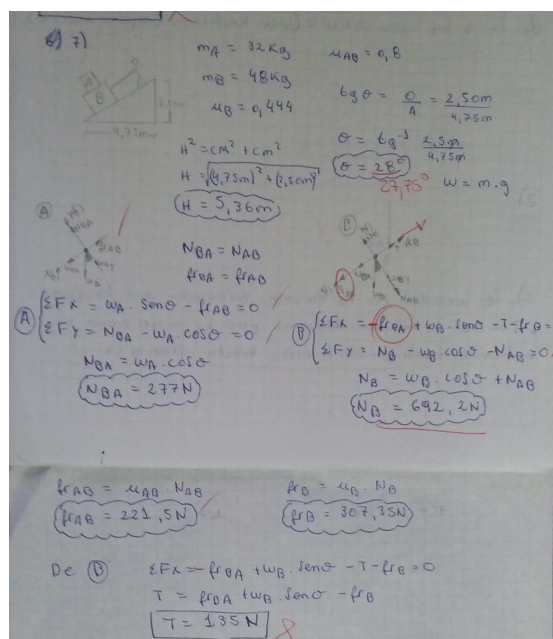 7)
mA = 32Kg
mB = 48Kg
μB = 0,444
μAB = 0,8
tg σ = O/A = 2,50m/4,75m
σ = tg⁻¹ 2,5m/4,75m
σ = 28°
27,75°
w = m.g
H² = cm² + cm²
H = √(4,75m)² + (2,50m)²
H = 5,36m
A
B
4,75m
A
NBA
frAB
NBA = NAB
frBA = frAB
A
ΣFx = wA . senσ - frAB = 0
ΣFy = NBA - wA . cosσ = 0
NBA = wA . cosσ
NBA = 277N
B
ΣFx = -frBA + wB . senσ - T - frB =
ΣFy = NB - wB cosσ - NAB = 0
NB = wB . cosσ + NAB
NB = 692,2N
frAB = μAB . NAB
frAB = 221,5N
frB = μB . NB
frB = 307,35N
De B
ΣFx = -frBA + wB . senσ - T - frB = 0
T = frBA + wB . senσ - frB
T = 135N